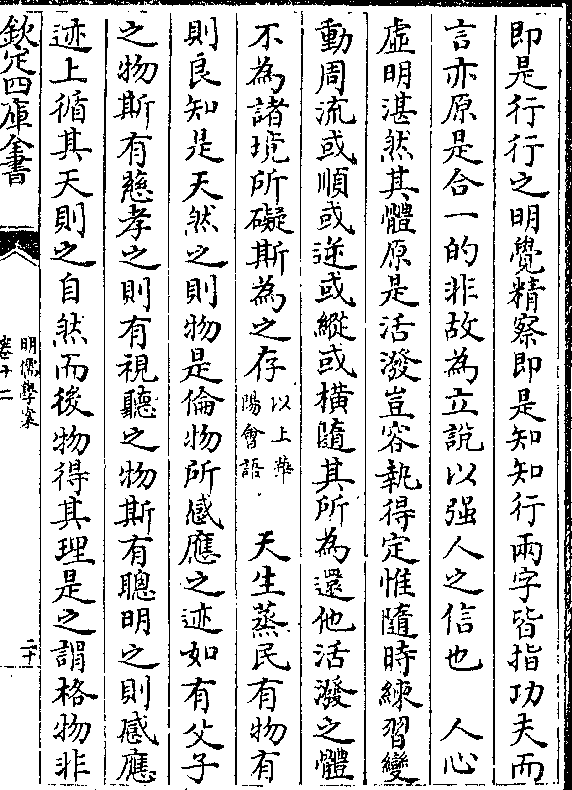 即是行行之明覺精察即是知知行兩字皆指功夫而
言亦原是合一的非故為立說以强人之信也 人心
虚明湛然其體原是活潑豈容執得定惟隨時練習變
動周流或順或逆或縱或橫隨其所為還他活潑之體
不為諸境所礙斯為之存以上華陽會語 天生蒸民有物有
則良知是天然之則物是倫物所感應之迹如有父子
之物斯有慈孝之則有視聽之物斯有聰明之則感應
迹上循其天則之自然而後物得其理是之謂格物非
欽定四庫全書
明儒學案
卷十二
二十